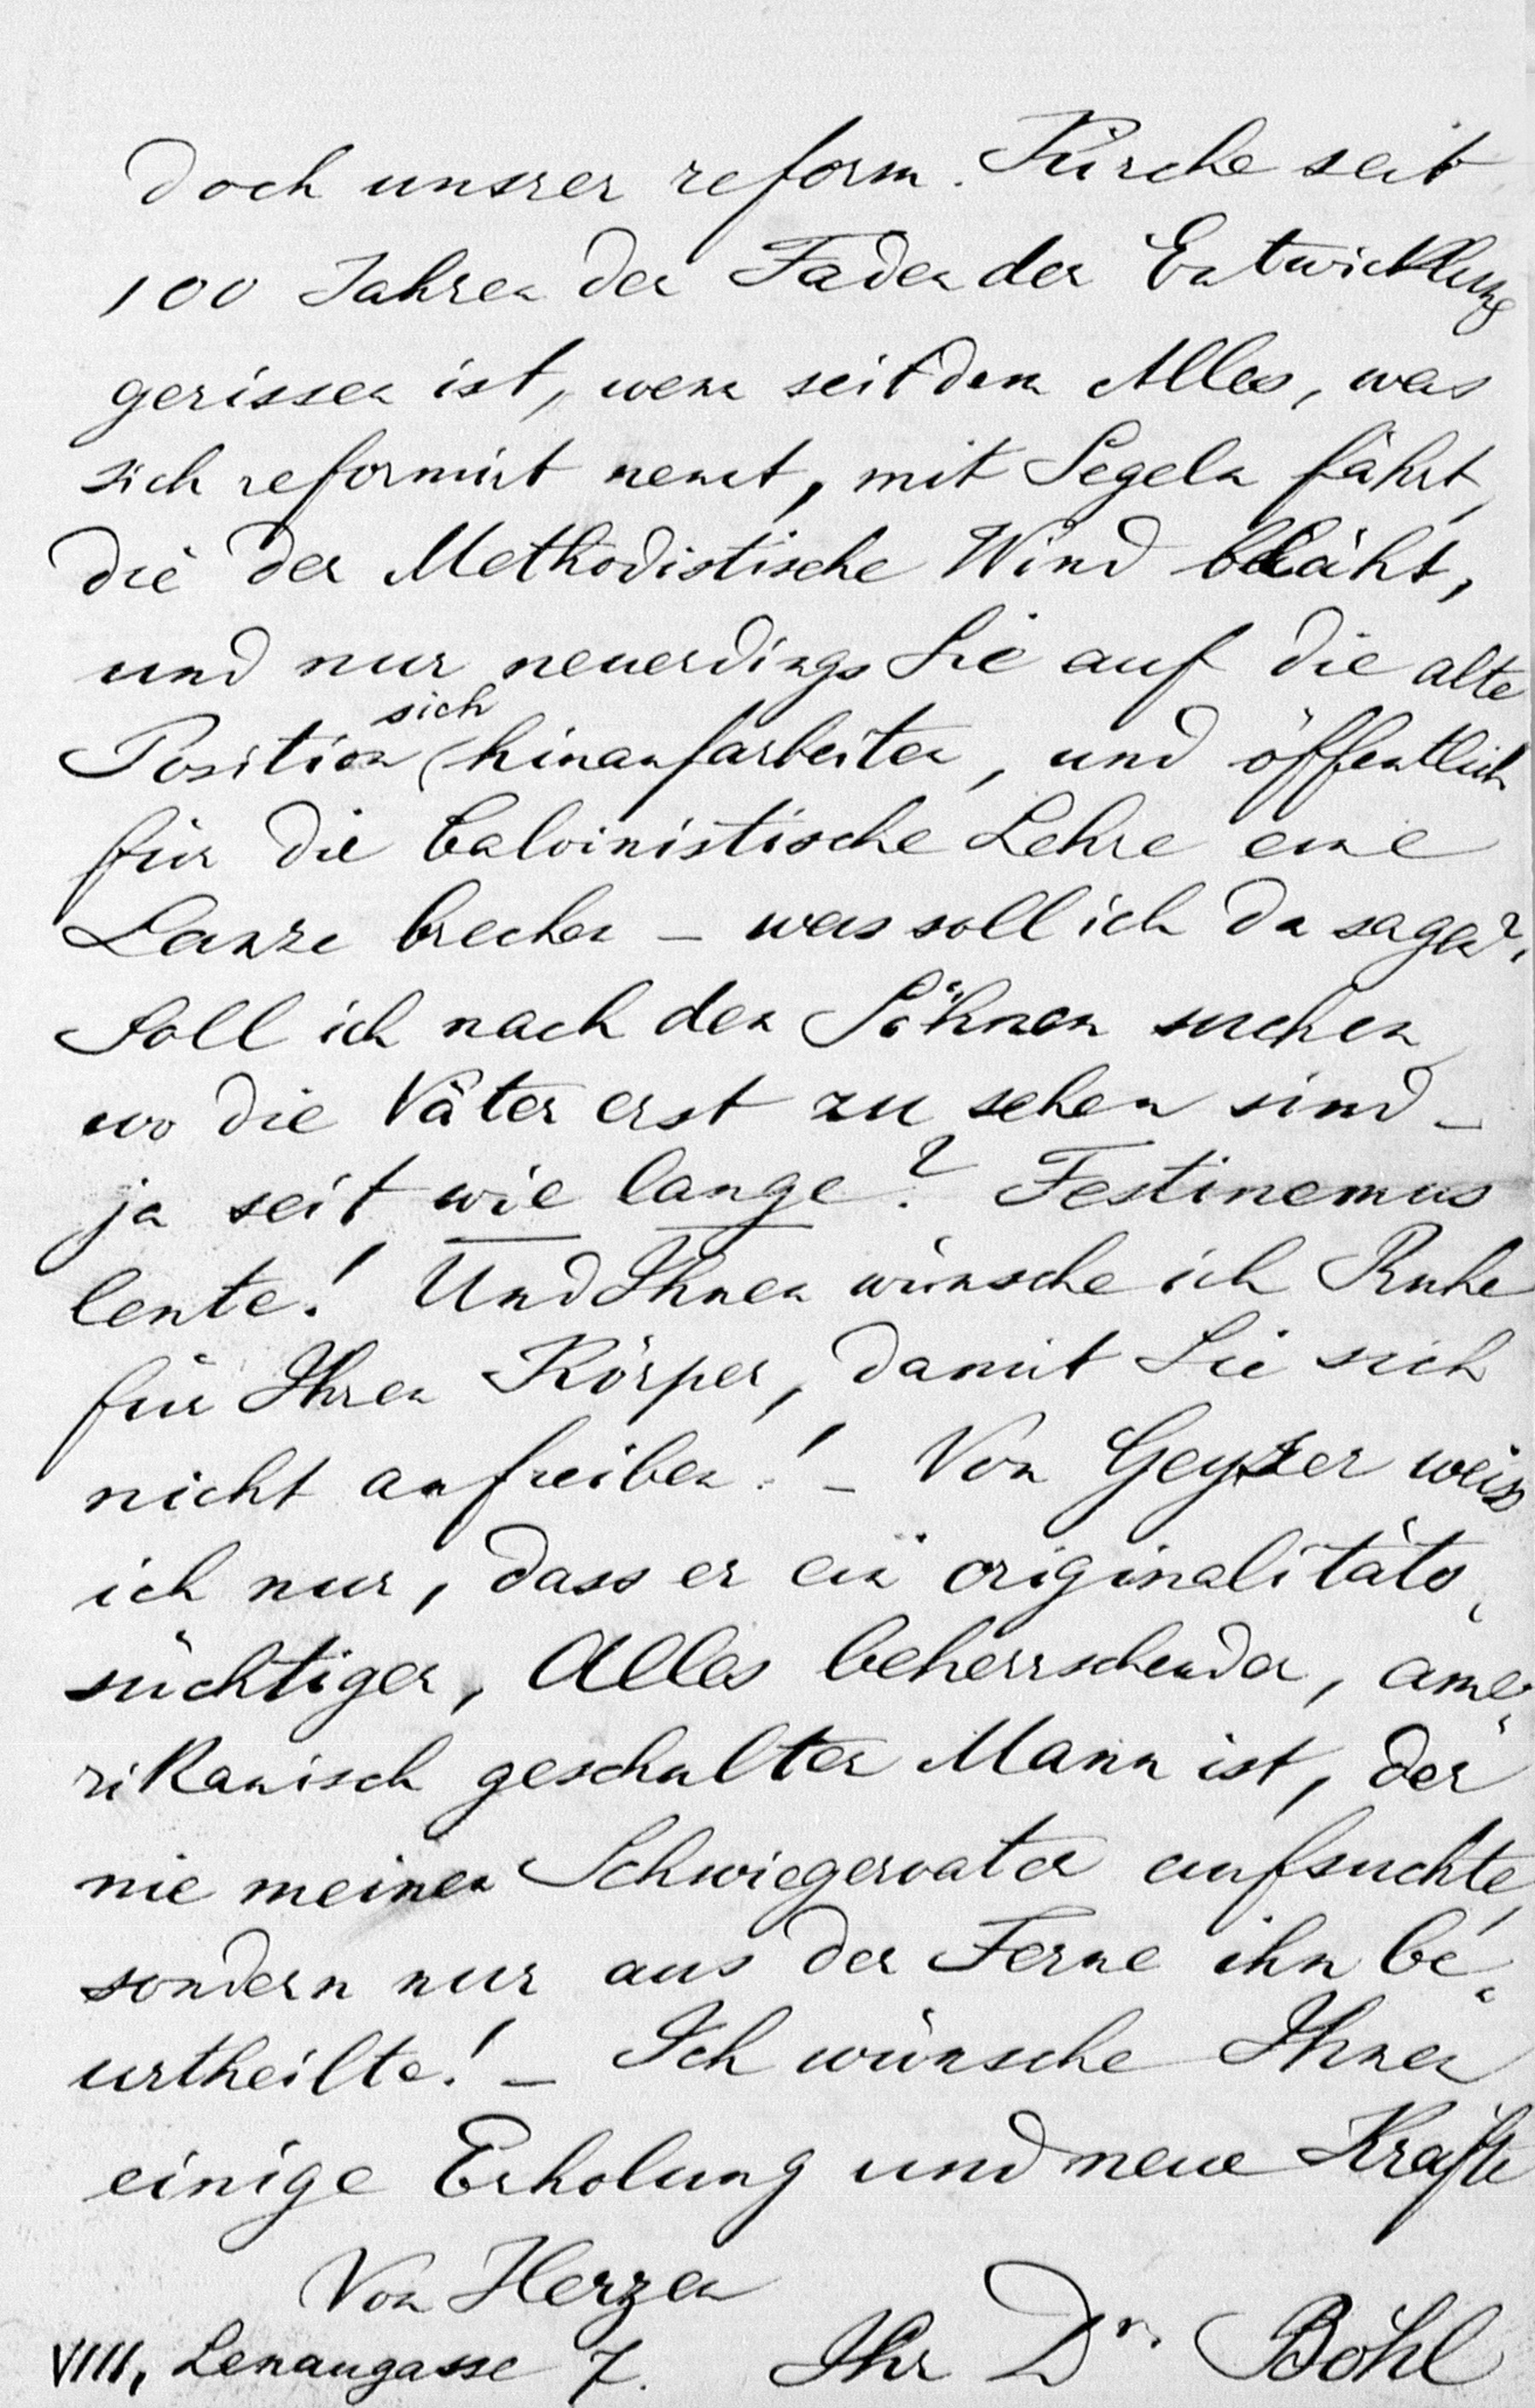 doch unsrer reform. Kirche seit
100 Jahren der Faden der Entwicklung
gerissen ist, wenn seitdem Alles, was
sich reformirt nennt, mit Segeln fährt,
die der Methodistische Wind bläht,
und nur neuerdings Sie auf die alte
sich
Position hinaufarbeiten, und öffentlich
für die Calvinistische Lehre eine
Lanze brechen – was soll ich da sagen?
Soll ich nach den Söhnen suchen
wo die Väter erst zu sehen sind –
ja seit wie lange? Festinemus
lente! Und Ihnen wünsche ich Ruhe
für Ihren Körper, damit Sie sich
nicht aufreiben! – Von Geyser weiss
ich nur, dass er ein originalitäts-
süchtiger, Alles beherrschender, ame-
rikanisch geschulter Mann ist, der
nie meinen Schwiegervater aufsuchte,
sondern nur aus der Ferne ihn be-
urtheilte! – Ich wünsche Ihnen
einige Erholung und neue Kräfte
Von Herzen
VIII, Lenaugasse 7. Ihr Dr. Böhl